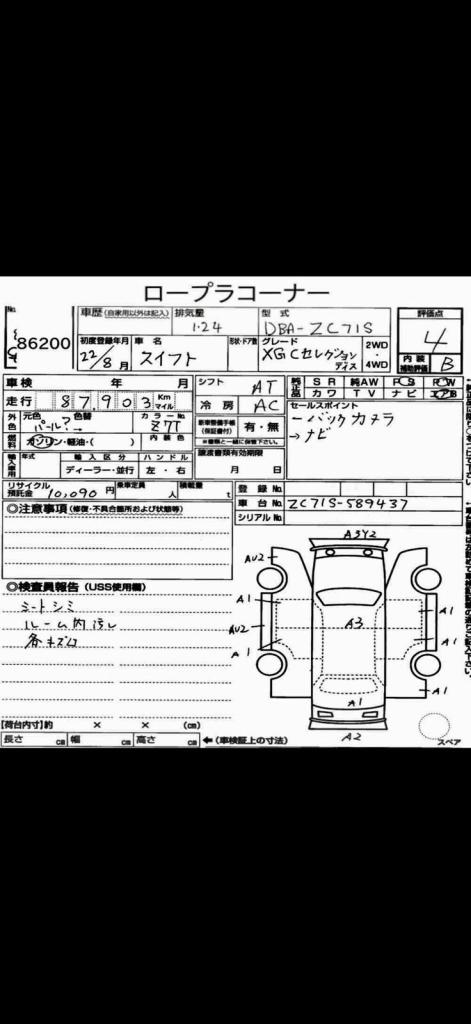 ロープラコーナー
No.
86200
車歴 (自家用以外は記入)
排気量
1.24
型式
DBA-ZC71S
評価点
4
初度登録年月
22/8月
車名
スイフト
形状・ドア数
グレード
XGCセレクション
ディス
2WD・4WD
内装
補助評価
B
車検 年 月
シフト
AT
純正品
SR 純AW PS PW
カワ TV ナビ エアB
走行 87,903 Km マイル
冷房
AC
セールスポイント
外色
元色
パール?→
色替
カラーNo.
Z7T
新車整備手帳
(保証書付)
有・無
※書類と一緒に保管下さい。
バックカメラ
ナビ
燃料
ガソリン・軽油・( )
内装色
輸入車用
年式
輸入区分
ディーラー・並行
ハンドル
左・右
譲渡書類有効期限
月 日
リサイクル預託金 10,090円
乗車定員 人
積載量 t
登録No.
車台No. ZC71S-589437
シリアルNo.
◎注意事項 (修復・不具合箇所および状態等)
A3Y2
AU2
A1
A1
AU2
A3
A1
A1
A1
A1
A2
スペア
◎検査員報告 (USS使用欄)
シートシミ
ルーム内汚レ
各キズ凹
【荷台内寸】約 × × (cm)
長さ cm 幅 cm 高さ cm ←(車検証上の寸法)